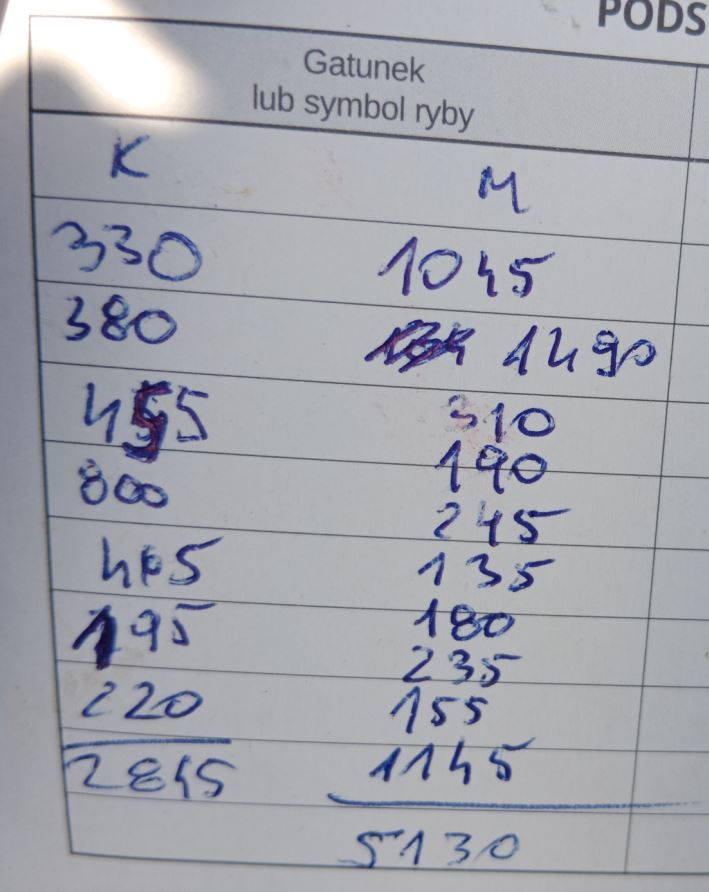 PODS
Gatunek
lub symbol ryby
K M
330 1045
380 1490
455 310
190
800 245
465 135
195 180
235
220 155
2845 1145
5130